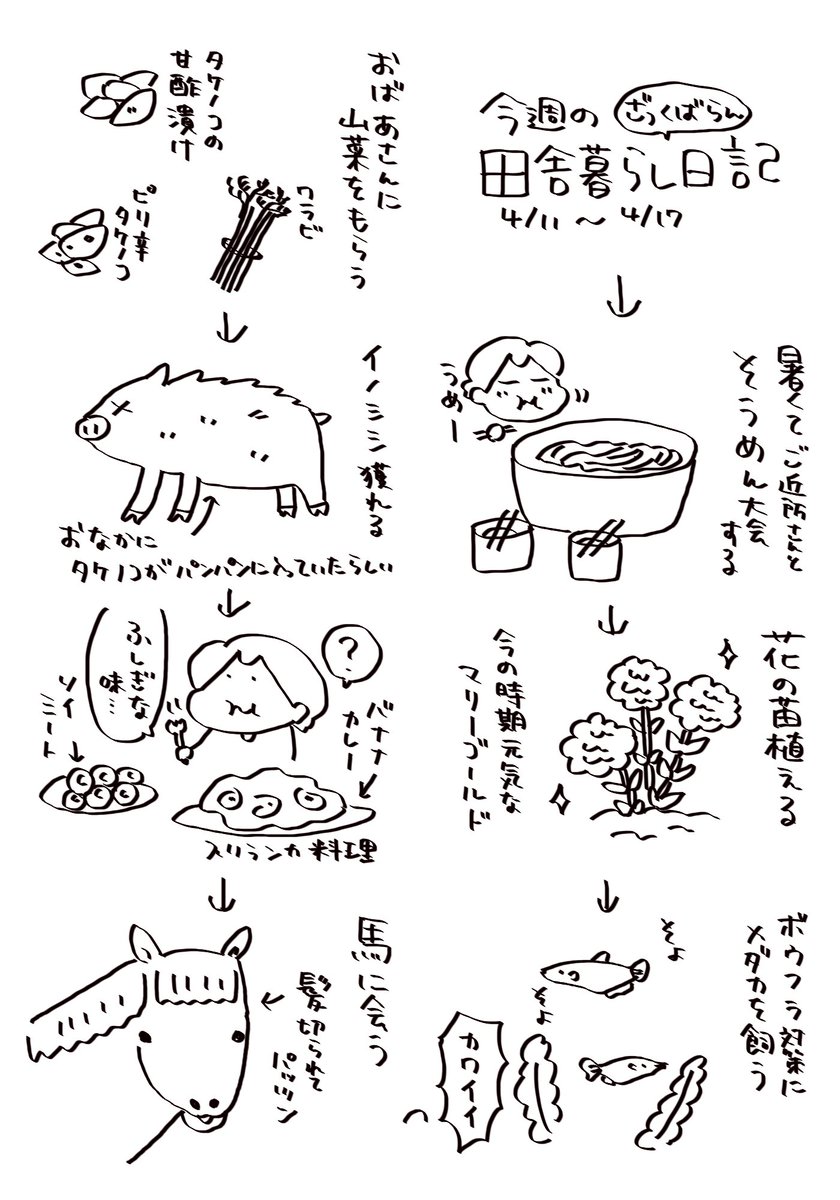 今週の
ざっくばらん
田舎暮らし日記
4/11〜4/17
暑くてご近所さんと
そうめん大会
する
うめー
花の苗植える
今の時期元気な
マリーゴールド
ボウフラ対策に
メダカを飼う
そよ
そよ
カワイイ
おばあさんに
山菜をもらう
タケノコの
甘酢漬け
ワラビ
ピリ辛
タケノコ
イノシシ獲れる
おなかに
タケノコがパンパンに入っていたらしい
?
バナナ
カレー
ふしぎな
味…
ソイ
ミート
スリランカ料理
馬に会う
髪切られて
パッツン